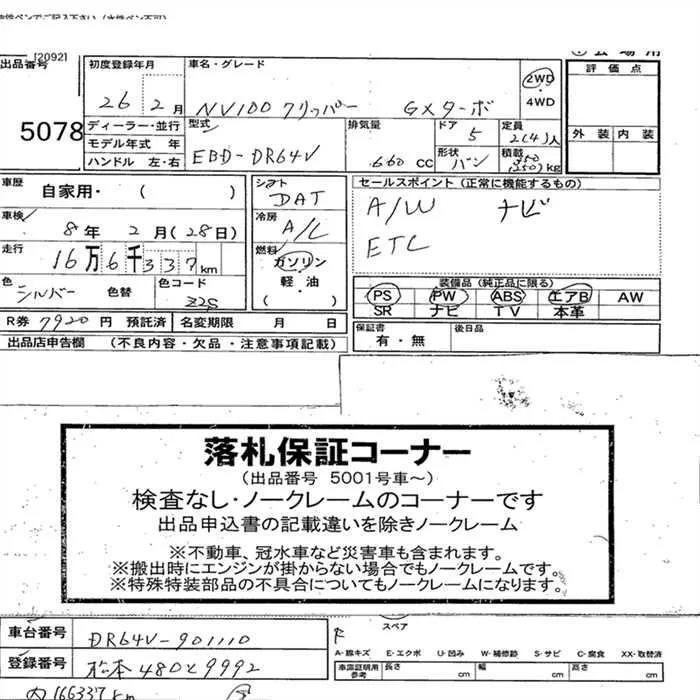 [2092]
出品番号
5078
初度登録年月
26 2月
車名・グレード
NV100 クリッパー GXターボ
2WD
・
4WD
評価点
外装 内装
ディーラー・並行
モデル年式 年
ハンドル 左・右
型式
EBD-DR64V
排気量
660 CC
ドア
5
形状
バン
定員
2(4)人
積載
350
(250)kg
車歴
自家用・ ( )
車検
8年 2月(28日)
走行
16万6千337km
色
シルバー 色替
色コード
シフト
DAT
冷房
A/C
燃料
ガソリン
軽油
( ・ )
セールスポイント (正常に機能するもの)
A/W ナビ
ETC
装備品 (純正品に限る)
PS PW ABS エアB AW
SR ナビ TV 本革
R券 7920円 預託済
名変期限 月 日
保証書
有・無
後日品
出品店申告欄 (不良内容・欠品・注意事項記載)
落札保証コーナー
(出品番号 5001号車〜)
検査なし・ノークレームのコーナーです
出品申込書の記載違いを除きノークレーム
※不動車、冠水車など災害車も含まれます。
※搬出時にエンジンが掛からない場合でもノークレームです。
※特殊特装部品の不具合についてもノークレームになります。
車台番号
DR64V-901110
登録番号
松本480と9992
内166337km
スペア
A-線キズ E-エクボ U-凹み W-補修跡 S-サビ C-腐食 XX-取替済
車庫証明用
参考
長さ cm
幅 cm
高さ cm